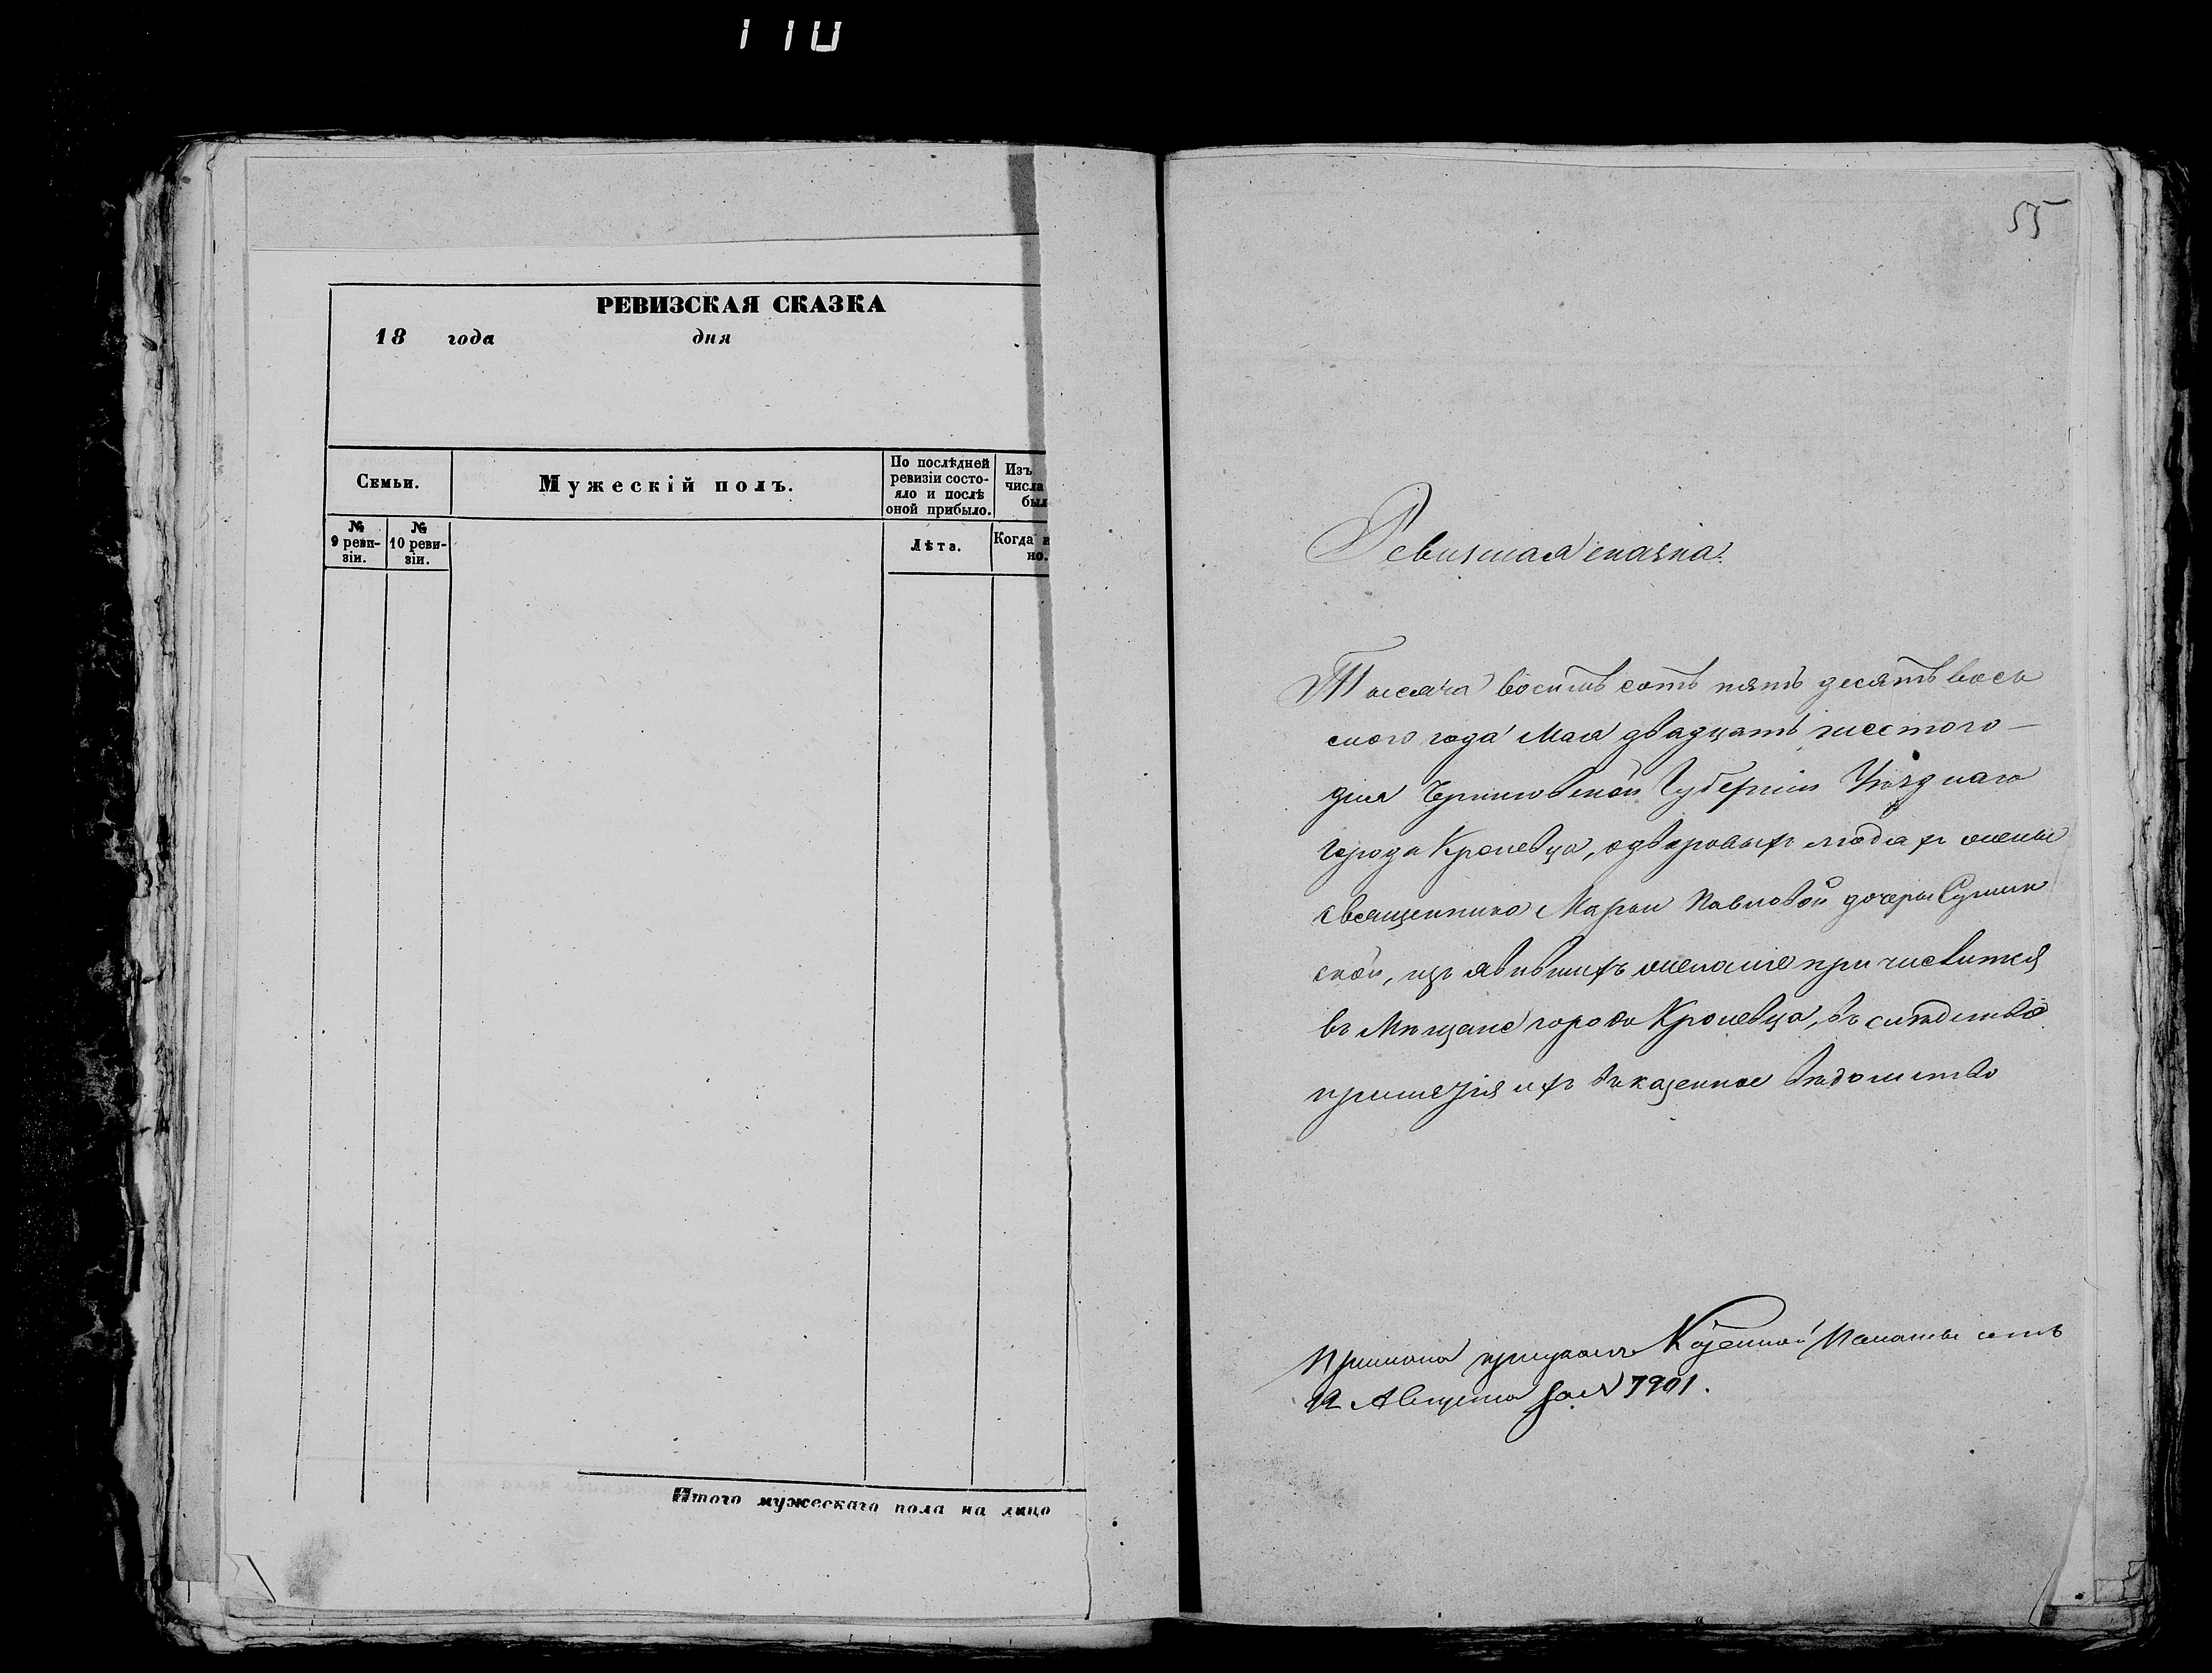 110
РЕВИЗСКАЯ СКАЗКА
18 года дня
Семьи.
Мужескій полъ.
По послѣдней
ревизіи состо-
яло и послѣ
оной прибыло.
Изъ
числа
был
№
9 реви-
зіи.
№
10 реви-
зіи.
Лѣта.
Когда и
но.
Итого мужескаго пола на лицо
55
Ревизская сказка.
Тысяча восемь сотъ пять десятъ вось
мого года Мая двадцать шестого
дня Черниговской Губерніи Уѣзднаго
города Кролевца, о дворовыхъ людяхъ жены
священника Марьи Павловой дочери
ской, изъявившихъ желаніе причислится
въ Мещане города Кролевца, въ слѣдствіе
ихъ въ казенное вѣдомство
Казенной Палаты отъ
12 Августа за № 7901.